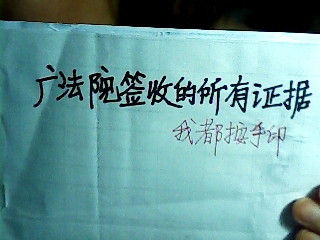 广法院签收的所有证据
我都按手印